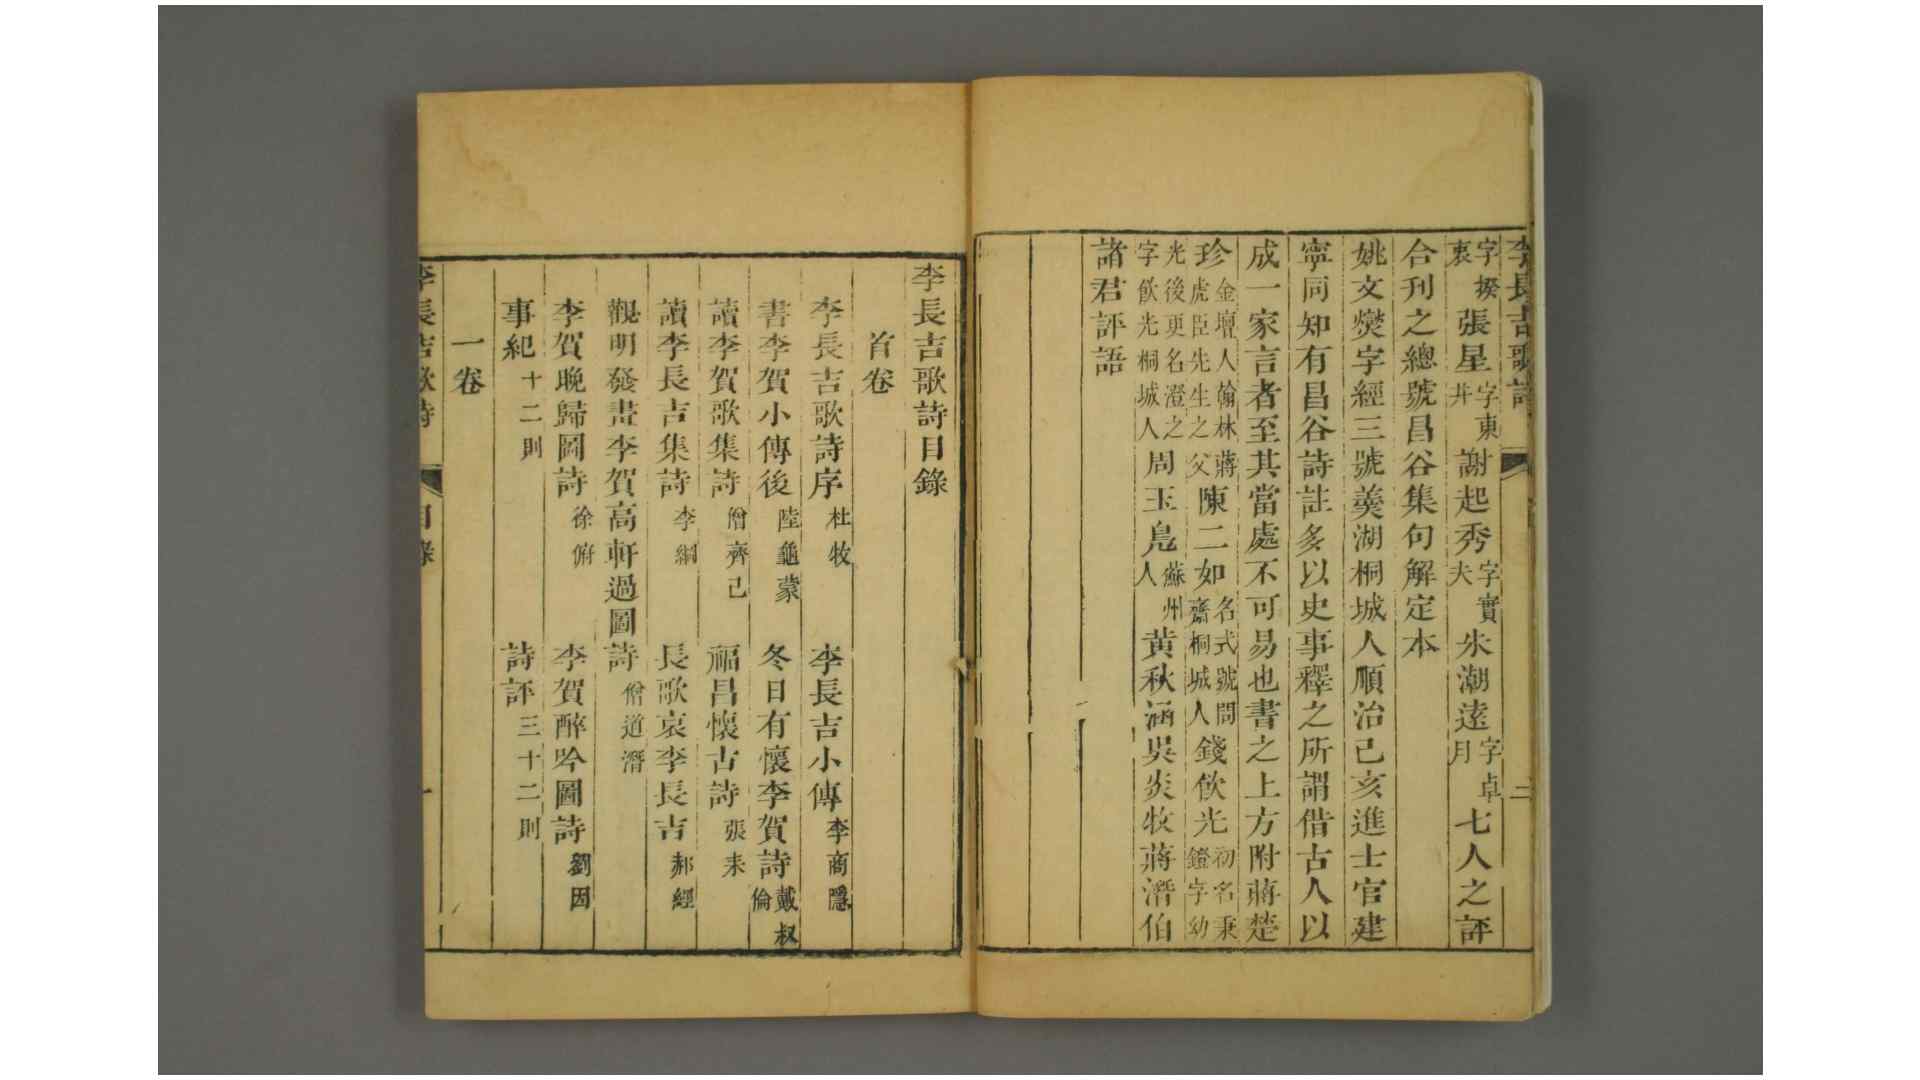 李長吉歌詩 二
字揆哀張星字東井謝起秀字實夫朱潮遠字卓月七人之評
合刊之總號昌谷集句解定本
姚文燮字經三號羹湖桐城人順治己亥進士官建
寧同知有昌谷詩註多以史事釋之所謂借古人以
成一家言者至其當處不可易也書之上方附蔣楚
珍金壇人翰林蔣虎臣先生之父陳二如名式號問齋桐城人錢飲光初名秉鐙字幼
光後更名澄之字飲光桐城人周玉凫蘇州人黄秋涵吳炎牧蔣潛伯
諸君評語
李長吉歌詩目錄
首卷
李長吉歌詩序杜牧 李長吉小傳李商隱
書李賀小傳後陸龜蒙 冬日有懷李賀詩戴叔倫
讀李賀歌集詩僧齊己 福昌懷古詩張耒
讀李長吉集詩李綱 長歌哀李長吉郝經
觀明發畫李賀高軒過圖詩僧道潛
李賀晚歸圖詩徐俯 李賀醉吟圖詩劉因
事紀十二則 詩評三十二則
一卷
李長吉歌詩 目錄 一